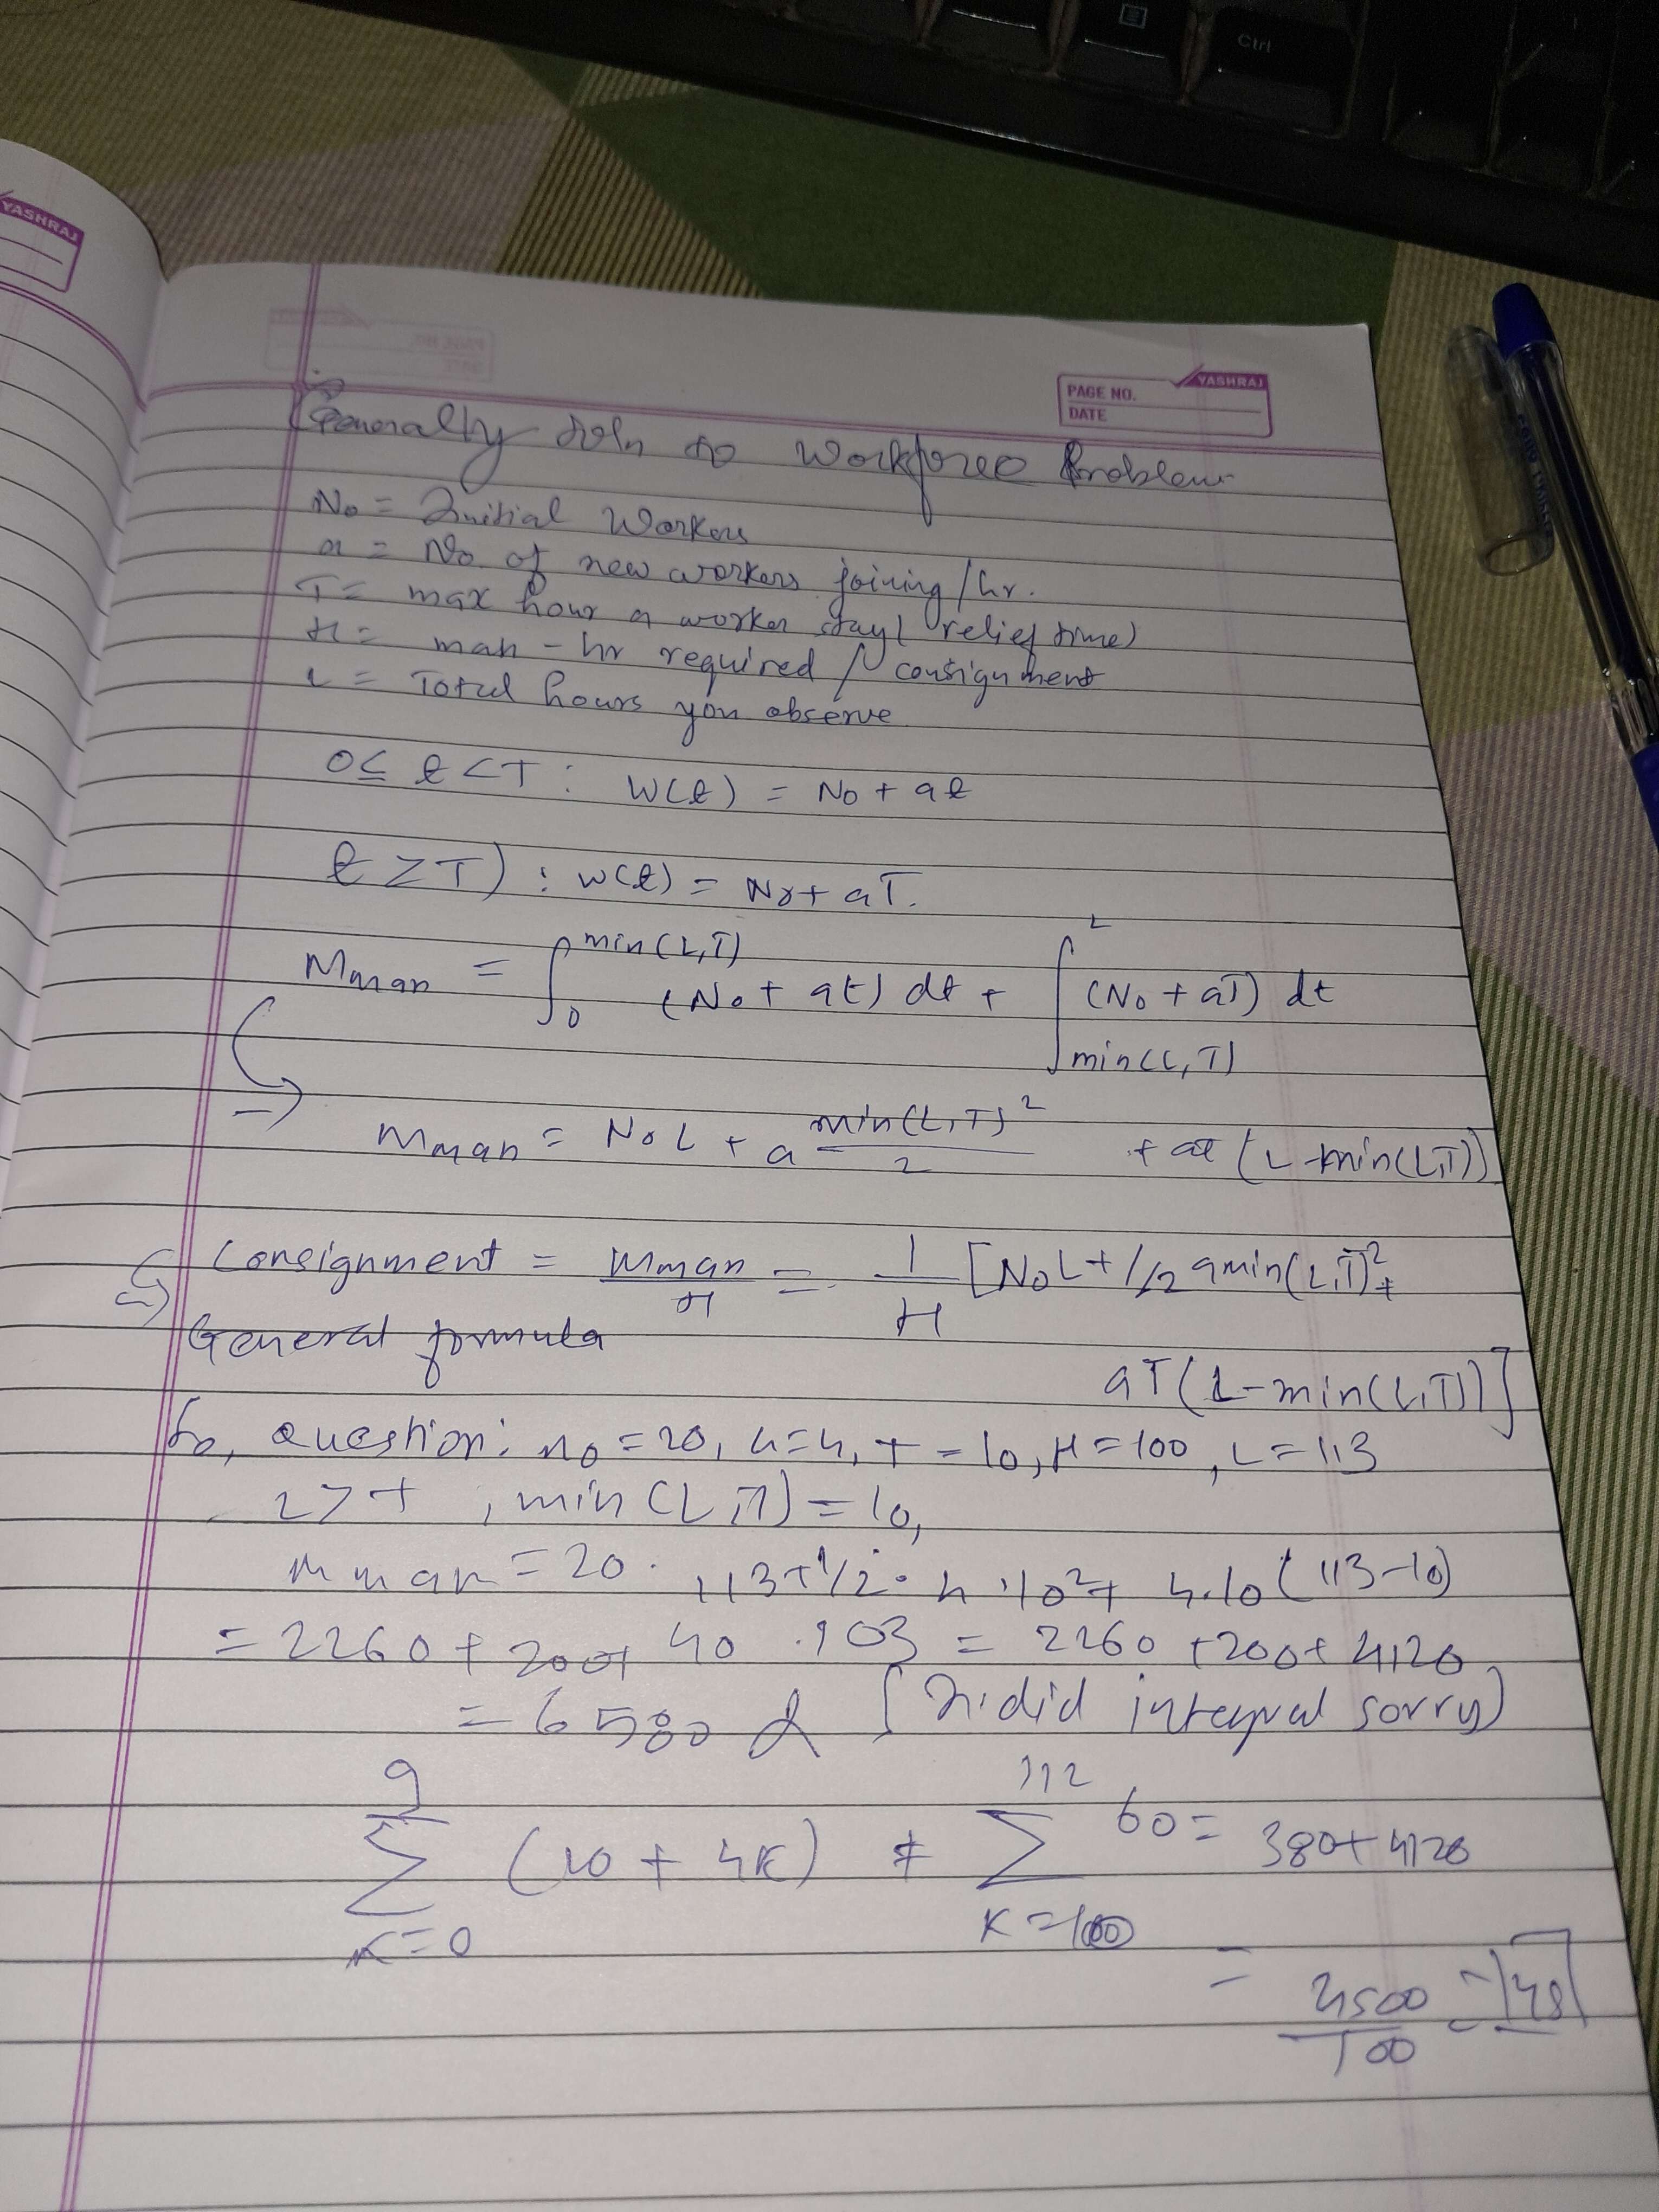 Ctrl
YASHRAJ
PAGE NO.
DATE
YASHRAJ
Generally soln to Workforce Problem
N0 = Initial Workers
a = No. of new workers joining/hr.
T = max hour a worker stay (relief time)
H = man-hr required / consignment
L = Total hours you observe
0 ≤ t < T : W(t) = N0 + at
t ≥ T) : w(t) = N0 + aT.
Mman = ∫0^min(L,T) (N0 + at) dt + ∫min(L,T)^L (N0 + aT) dt
=> Mman = N0L + a min(L,T)^2/2 + at (L - min(L,T))
Consignment = Mman/H = 1/H [N0L + 1/2 a min(L,T)^2 +
General formula
aT(L - min(L,T))]
So, question: n0 = 20, a = 4, T = 10, H = 100, L = 113
L > T, min(L,T) = 10,
Mman = 20 · 113 + 1/2 · 4 · 10^2 + 4.10 (113-10)
= 2260 + 200 + 40 · 103 = 2260 + 200 + 4120
= 6580 (I did integral sorry)
9 ∑ K=0 (20 + 4K) + 112 ∑ K=10 60 = 380 + 4120
= 4500/100 = 45